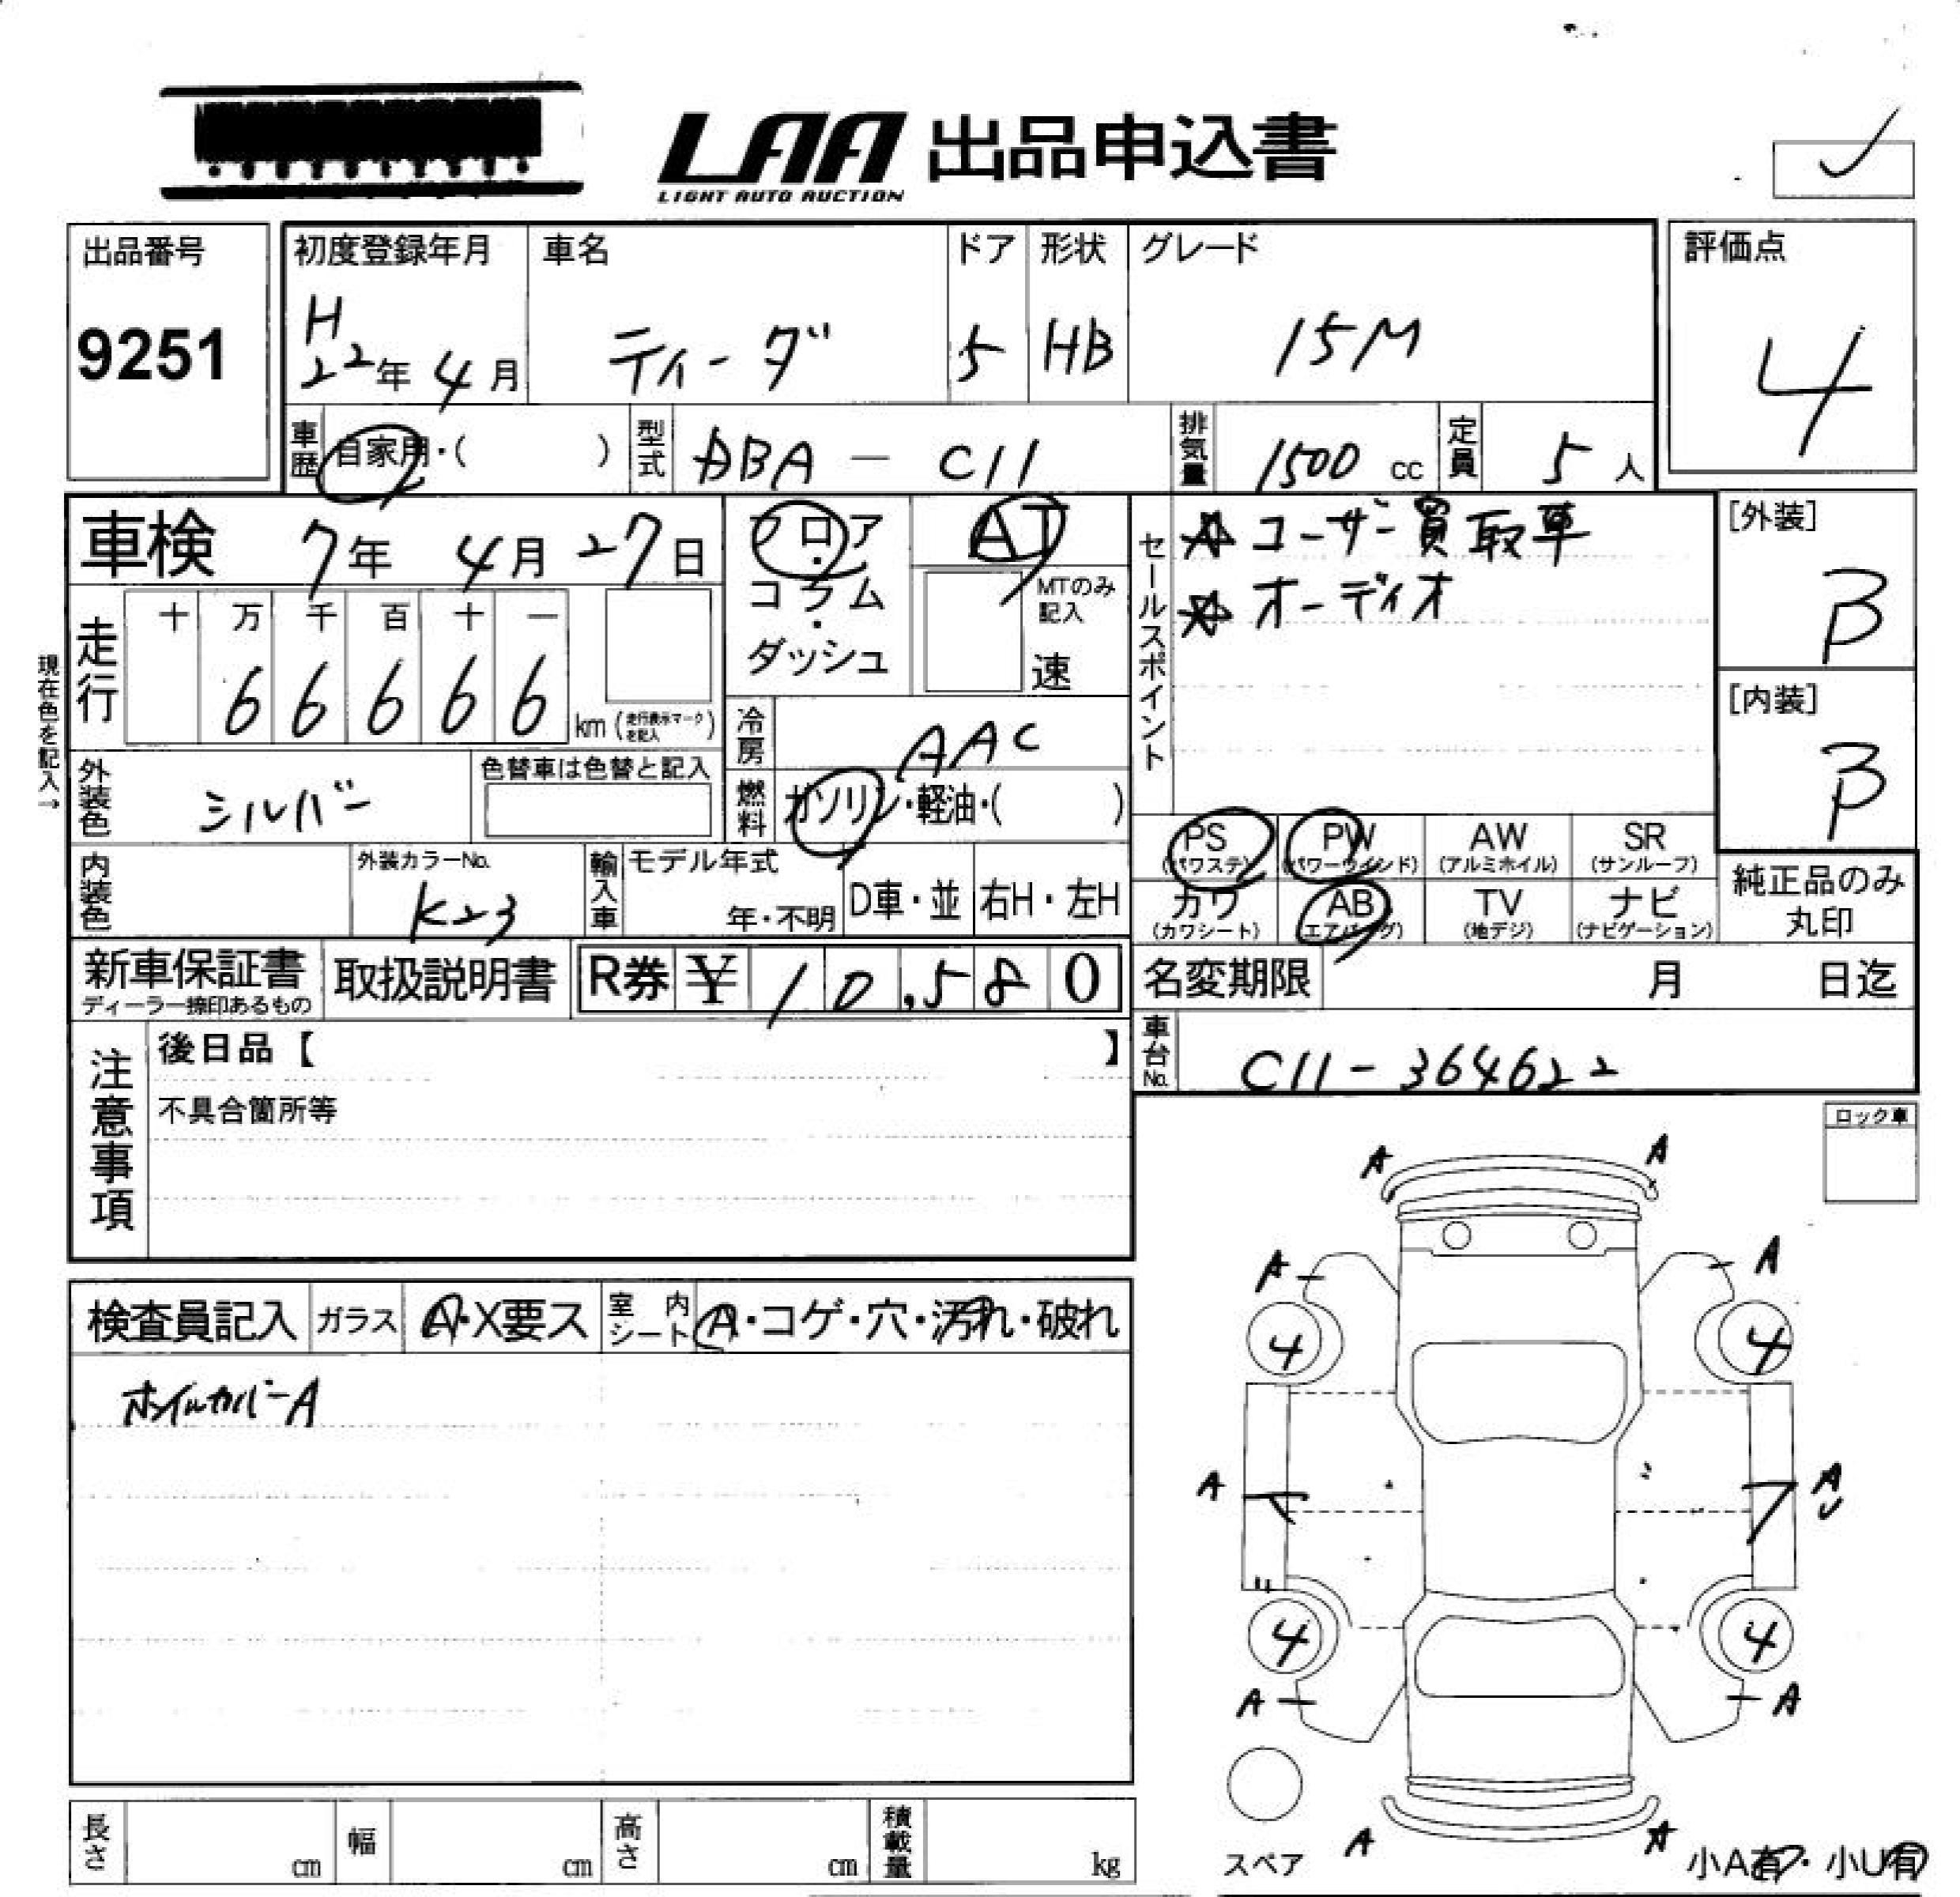 LAA 出品申込書
LIGHT AUTO AUCTION
出品番号
9251
初度登録年月
H
22年 4月
車名
ティーダ
ドア
5
形状
HB
グレード
15M
評価点
4
車歴
自家用・( )
型式
DBA - C11
排気量
1500 cc
定員
5 人
車検 7年 4月 27日
フロア・コラム・ダッシュ
AT
MTのみ記入
速
セールスポイント
☆ユーザー買取車
☆オーディオ
[外装]
B
[内装]
B
現在色を記入→
走行
十 万 千 百 十 一
6 6 6 6 6
km (走行表示マークを記入)
冷房
AAC
燃料
ガソリン・軽油・( )
外装色
シルバー
色替車は色替と記入
内装色
外装カラーNo.
K23
輸入車
モデル年式
年・不明
D車・並
右H・左H
PS
(パワステ)
PW
(パワーウインド)
AW
(アルミホイル)
SR
(サンルーフ)
カワ
(カワシート)
AB
(エアバッグ)
TV
(地デジ)
ナビ
(ナビゲーション)
純正品のみ
丸印
新車保証書
ディーラー捺印あるもの
取扱説明書
R券 ¥ 10,580
名変期限
月 日迄
車台No.
C11-364622
注意事項
後日品【 】
不具合箇所等
ロック車
検査員記入
ガラス
A・X要ス
室内シート
A・コゲ・穴・汚れ・破れ
ホイルカバーA
A A
A A
4 4
A A
U
4 4
A A
A A
スペア
小A有・小U有
長さ cm
幅 cm
高さ cm
積載量 kg